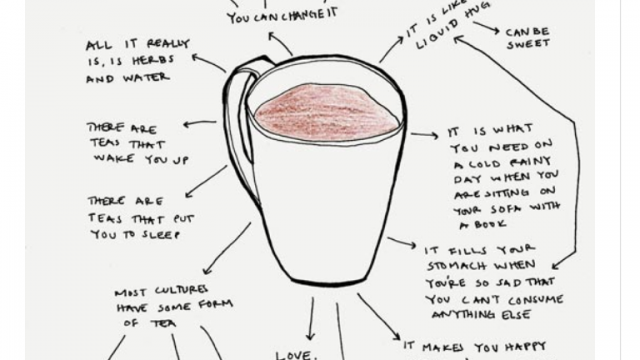 YOU CAN CHANGE IT
IT IS LIKE
LIQUID HUG
CAN BE
SWEET
ALL IT REALLY
IS, IS HERBS
AND WATER
THERE ARE
TEAS THAT
WAKE YOU UP
IT IS WHAT
YOU NEED ON
A COLD RAINY
DAY WHEN YOU
ARE SITTING ON
YOUR SOFA WITH
A BOOK
THERE ARE
TEAS THAT PUT
YOU TO SLEEP
IT FILLS YOUR
STOMACH WHEN
YOU'RE SO SAD THAT
YOU CAN'T CONSUME
ANYTHING ELSE
MOST CULTURES
HAVE SOME FORM
OF TEA
LOVE,
IT MAKES YOU HAPPY